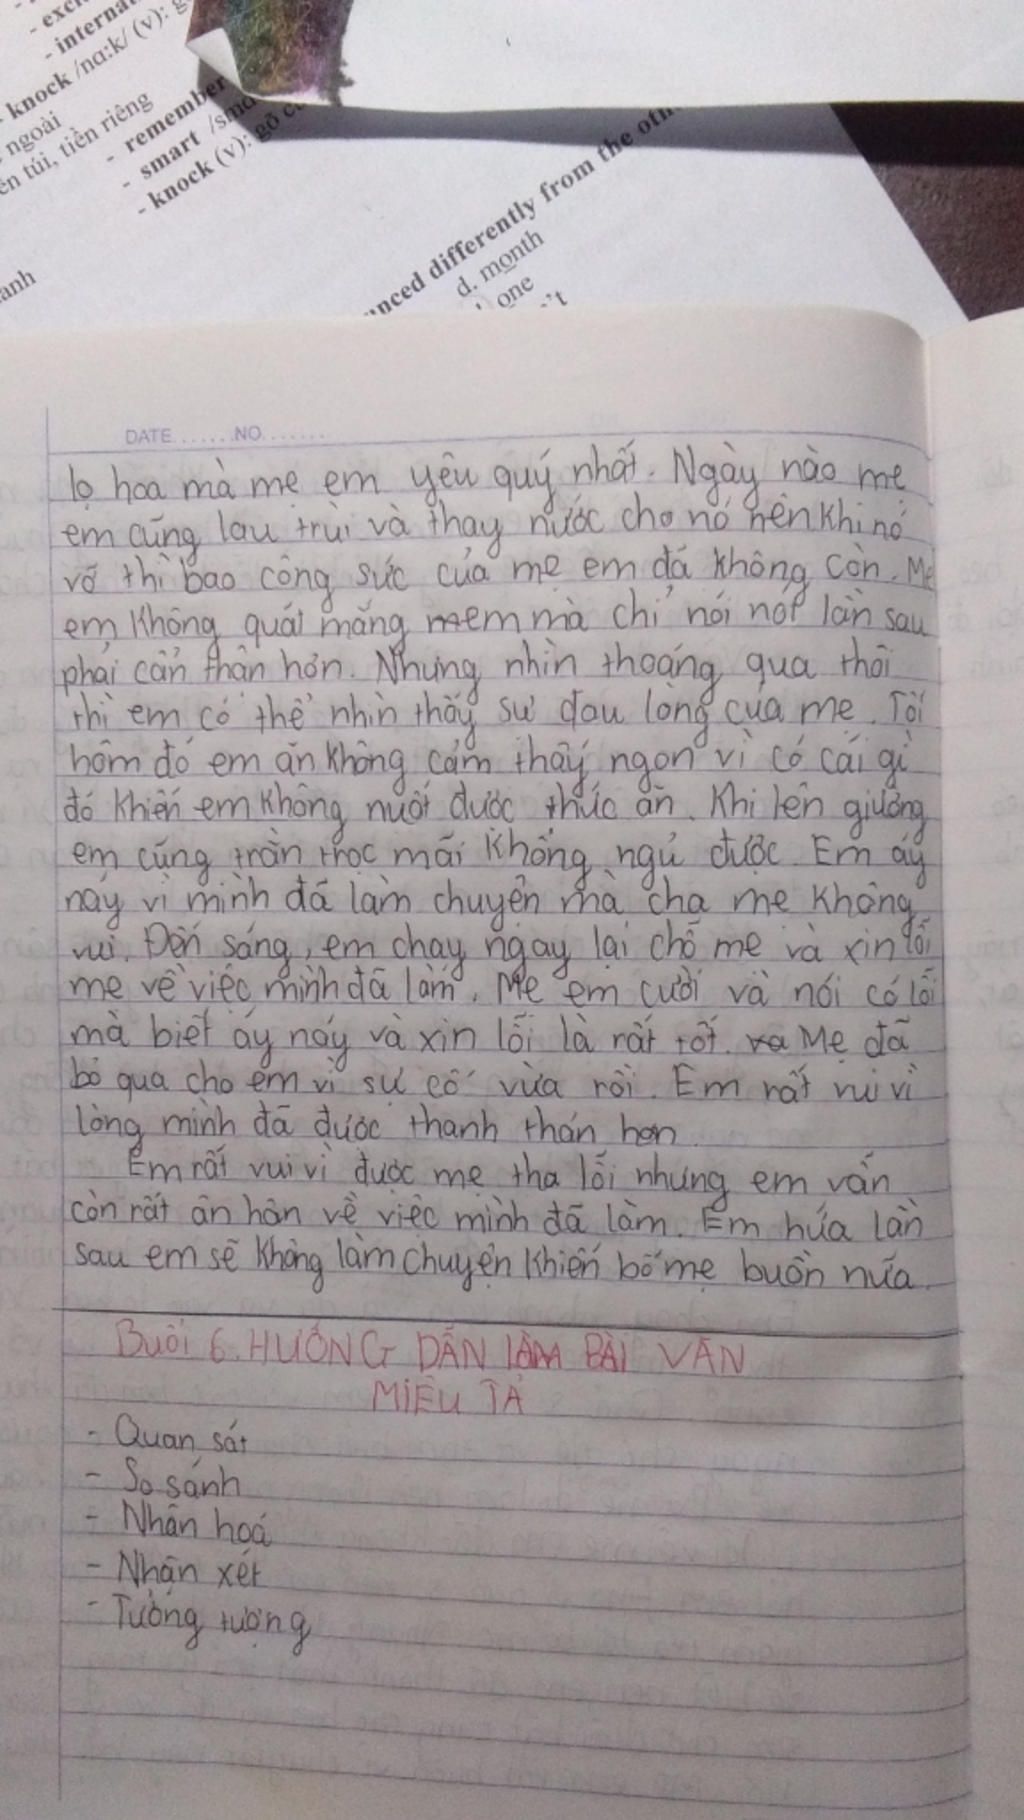 - inter
knock /nɑ:k/ (v):
ngoài
túi, tiền riêng
- remember
- smart
- knock (v): gõ
anh
differently from the
d. month
one
DATE.......NO.......
lọ hoa mà mẹ em yêu quý nhất. Ngày nào mẹ
em cũng lau trùi và thay nước cho nó nên khi nó
vỡ thì bao công sức của mẹ em đã không còn. Mẹ
em không quát mắng em mà chỉ nói nót lần sau
phải cẩn thận hơn. Nhưng nhìn thoáng qua thôi
thì em có thể nhìn thấy sự đau lòng của mẹ. Tối
hôm đó em ăn không cảm thấy ngon vì có cái gì
đó khiến em không nuốt được thức ăn. Khi lên giường
em cũng trằn trọc mãi không ngủ được. Em áy
náy vì mình đã làm chuyện mà cha mẹ không
vui. Đến sáng, em chạy ngay lại chỗ mẹ và xin lỗi
mẹ về việc mình đã làm. Mẹ em cười và nói có lỗi
mà biết áy náy và xin lỗi là rất tốt. Mẹ đã
bỏ qua cho em vì sự cố vừa rồi. Em rất vui vì
lòng mình đã được thanh thản hơn.
Em rất vui vì được mẹ tha lỗi nhưng em vẫn
còn rất ân hận về việc mình đã làm. Em hứa lần
sau em sẽ không làm chuyện khiến bố mẹ buồn nữa.
Buổi 6. HƯỚNG DẪN LÀM BÀI VĂN
MIÊU TẢ
- Quan sát
- So sánh
- Nhân hoá
- Nhận xét
- Tưởng tượng